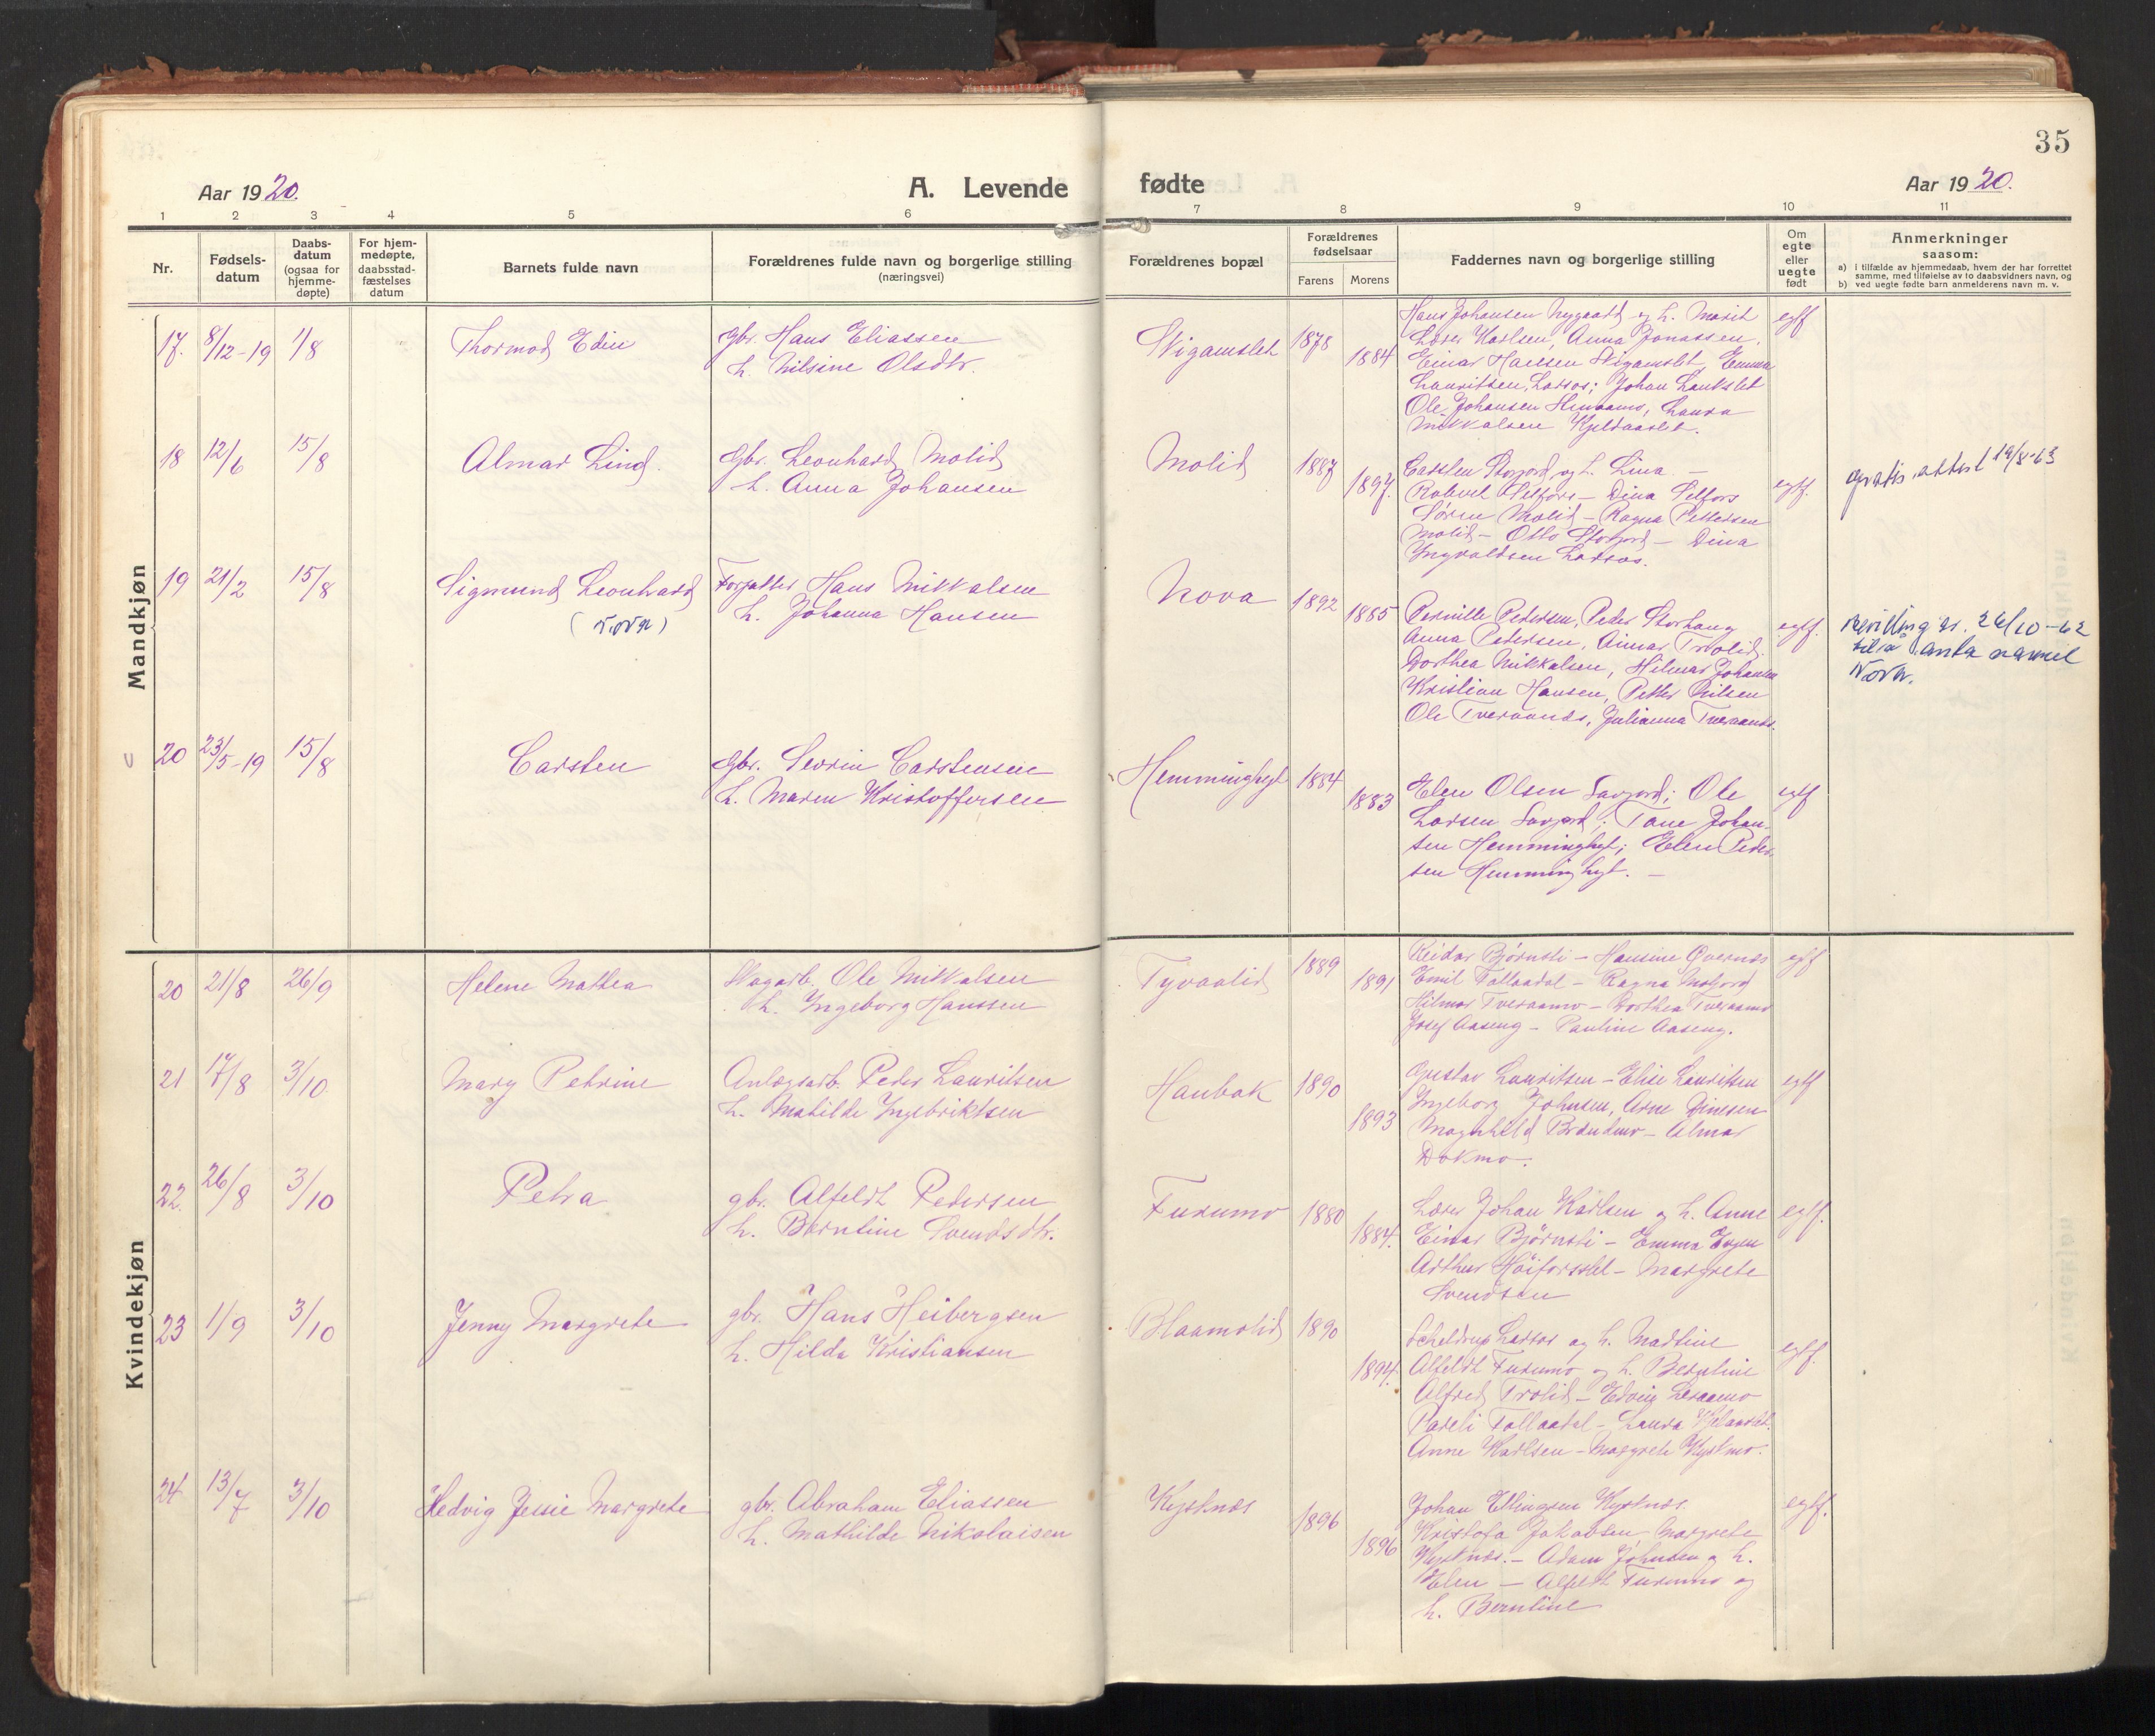 35
Aar 1920.
A. Levende fødte
Aar 1920.
1 2 3 4 5 6 7 8 9 10 11
Nr.
Fødsels-
datum
Daabs-
datum
(ogsaa for
hjemme-
døpte)
For hjem-
medøpte,
daabsstad-
fæstelses
datum
Barnets fulde navn
Forældrenes fulde navn og borgerlige stilling
(næringsvei)
Forældrenes bopæl
Forældrenes
fødselsaar
Farens Morens
Faddernes navn og borgerlige stilling
Om
egte
eller
uegte
født
Anmerkninger
saasom:
a) i tilfælde av hjemmedaab, hvem der har forrettet
samme, med tilføielse av to daabsvidners navn, og
b) ved uegte fødte barn anmelderens navn m. v.
Mandkjøn
17. 8/12-19 1/8
Thormod Edin
Gbr. Hans Eliassen
h. Nilsine Olsdtr.
1878
1884
Hans Johansen Nygaard og h. Marit
Lærer Karlsen, Anna Jonassen,
Einar Hansen Emma
Lauritsen, Larsos; Johan
Ole Johansen Laura
Mikkalsen
egtf
18 12/6 15/8
Almar Lind.
Gbr. Leonhard Molid
h. Anna Johansen
Molid
1887
1897.
Carsten Storjord og h. Lina. —
Robert Selfors — Dina Selfors
Søren Molid — Ragna Pettersen
Molid — Otto Storjord — Dina
Ingvaldsen Larsos.
egtf.
gratis attest 19/8-63
19 21/2 15/8
Sigmund Leonhard
(Nova)
Forpakter Hans Mikkalsen
h. Johanna Hansen
Nova
1892
1885
Pernille Pedersen, Peder Storhaug
Anna Pedersen, Einar Trolid.
Dorthea Mikkalsen, Hilmar Johansen
Kristian Hansen, Petter Nilsen
Ole Tveraanes, Julianna Tveraanes.
egtf.
bevilling av 26/10-62
til å anta navnet
Nova.
20 23/5-19 15/8
Carsten
Gbr. Sevrin Carstensen
h. Maren Kristoffersen
Hemminghyt
1884
1883
Elen Olsen Ole
Larsen Tane Johan-
sen Hemminghyt; Elen Peder-
sen Hemminghyt. —
egtf
Kvindekjøn
20 21/8 26/9
Helene Mathea
Ole Mikkalsen
h. Ingeborg Hanssen
Tyvaalid
1889
1891
Reidar Bjørnsti — Hansine Qvernes
Emil Fallaadal — Ragna
Hilmar Tveraamo — Dorthea Tveraamo
Josef Aaseng — Pauline Aaseng.
egtf
21 17/8 3/10
Mary Petrine
Anlægsarb. Peder Lauritsen
h. Matilde Ingebriktsen
Haubak
1890
1893
Gustav Lauritsen — Elise Lauritsen
Ingeborg Johnsen, Arne Dinesen
Magnhild — Almar
Dokmo.
egtf
22. 26/8 3/10
Petra
gbr. Alfeldt Pedersen
h. Berntine Svendsdtr.
Furumo
1880
1884.
Lærer Johan Karlsen og h. Anne
Einar Bjørnsti — Emma
Arthur Høiforsslet — Margrete
Svendsen
egtf.
23 1/9 3/10
Jenny Margrete
gbr. Hans Heibergsen
h. Hilda Kristiansen
Blaamolid
1890
1894.
Scheldrup Larsos og h. Martine
Alfeldt Furumo og h. Berntine
Alfred Trolid — Edvin Leraamo
Pareli Fallaadal — Laura
Anne Karlsen — Margrete Kystmo.
egtf.
24 13/7 3/10
Hedvig Jessie Margrete
gbr. Abraham Eliassen
h. Mathilde Nikolaisen
Kystnes
1896
1896
Johan Ellingsen Kystnes
Kristofa Jakobsen, Margrete
Kystnes. — Adam Johnsen og h.
Elen — Alfeldt Furumo og
h. Berntine
egtf.